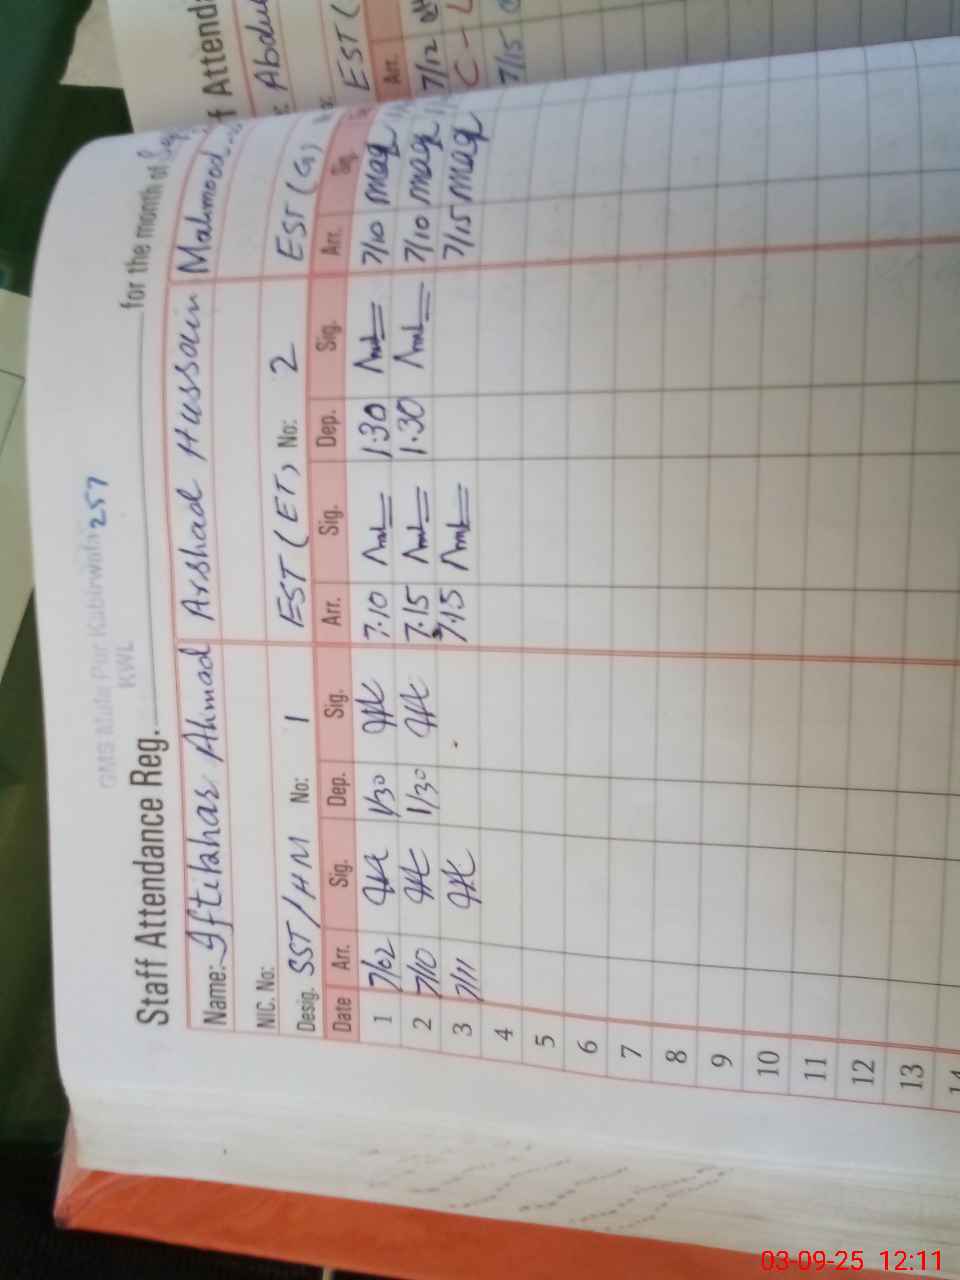 GMS Mufa Pur Kabirwala 257
KWL
Staff Attendance Reg. for the month of Sep
Name: Iftikhar Ahmad Arshad Hussain Mahmood
NIC. No:
Desig. SST/HM No: 1 EST (ET) No: 2 EST (G)
Date Arr. Sig. Dep. Sig. Arr. Sig. Dep. Sig. Arr. Sig.
1 7/02 1/30 7.10 1.30 7/10 maq
2 7/10 1/30 7.15 1.30 7/10 maq
3 7/11 7.15 7/15 maq
4
5
6
7
8
9
10
11
12
13
14
f Attenda
Abdul
EST (
Arr.
7/12
C-L
7/15
03-09-25 12:11